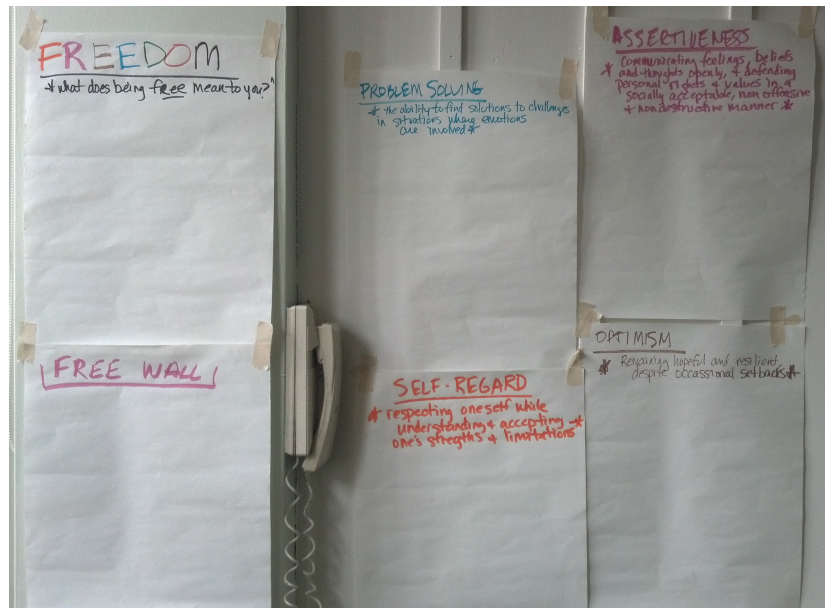 FREEDOM
*what does being free mean to you?*
FREE WALL
PROBLEM SOLVING
* the ability to find solutions to challenges
in situations where emotions
are involved *
SELF-REGARD
* respecting oneself while
understanding & accepting *
one's stregths & limitations
ASSERTIVENESS
* communicating feelings, beliefs
and thoughts openly, & defending
personal rights & values in a
socially acceptable, non offensive
& non destructive manner *
OPTIMISM
* Remaining hopeful and resilient,
despite occassional setbacks *